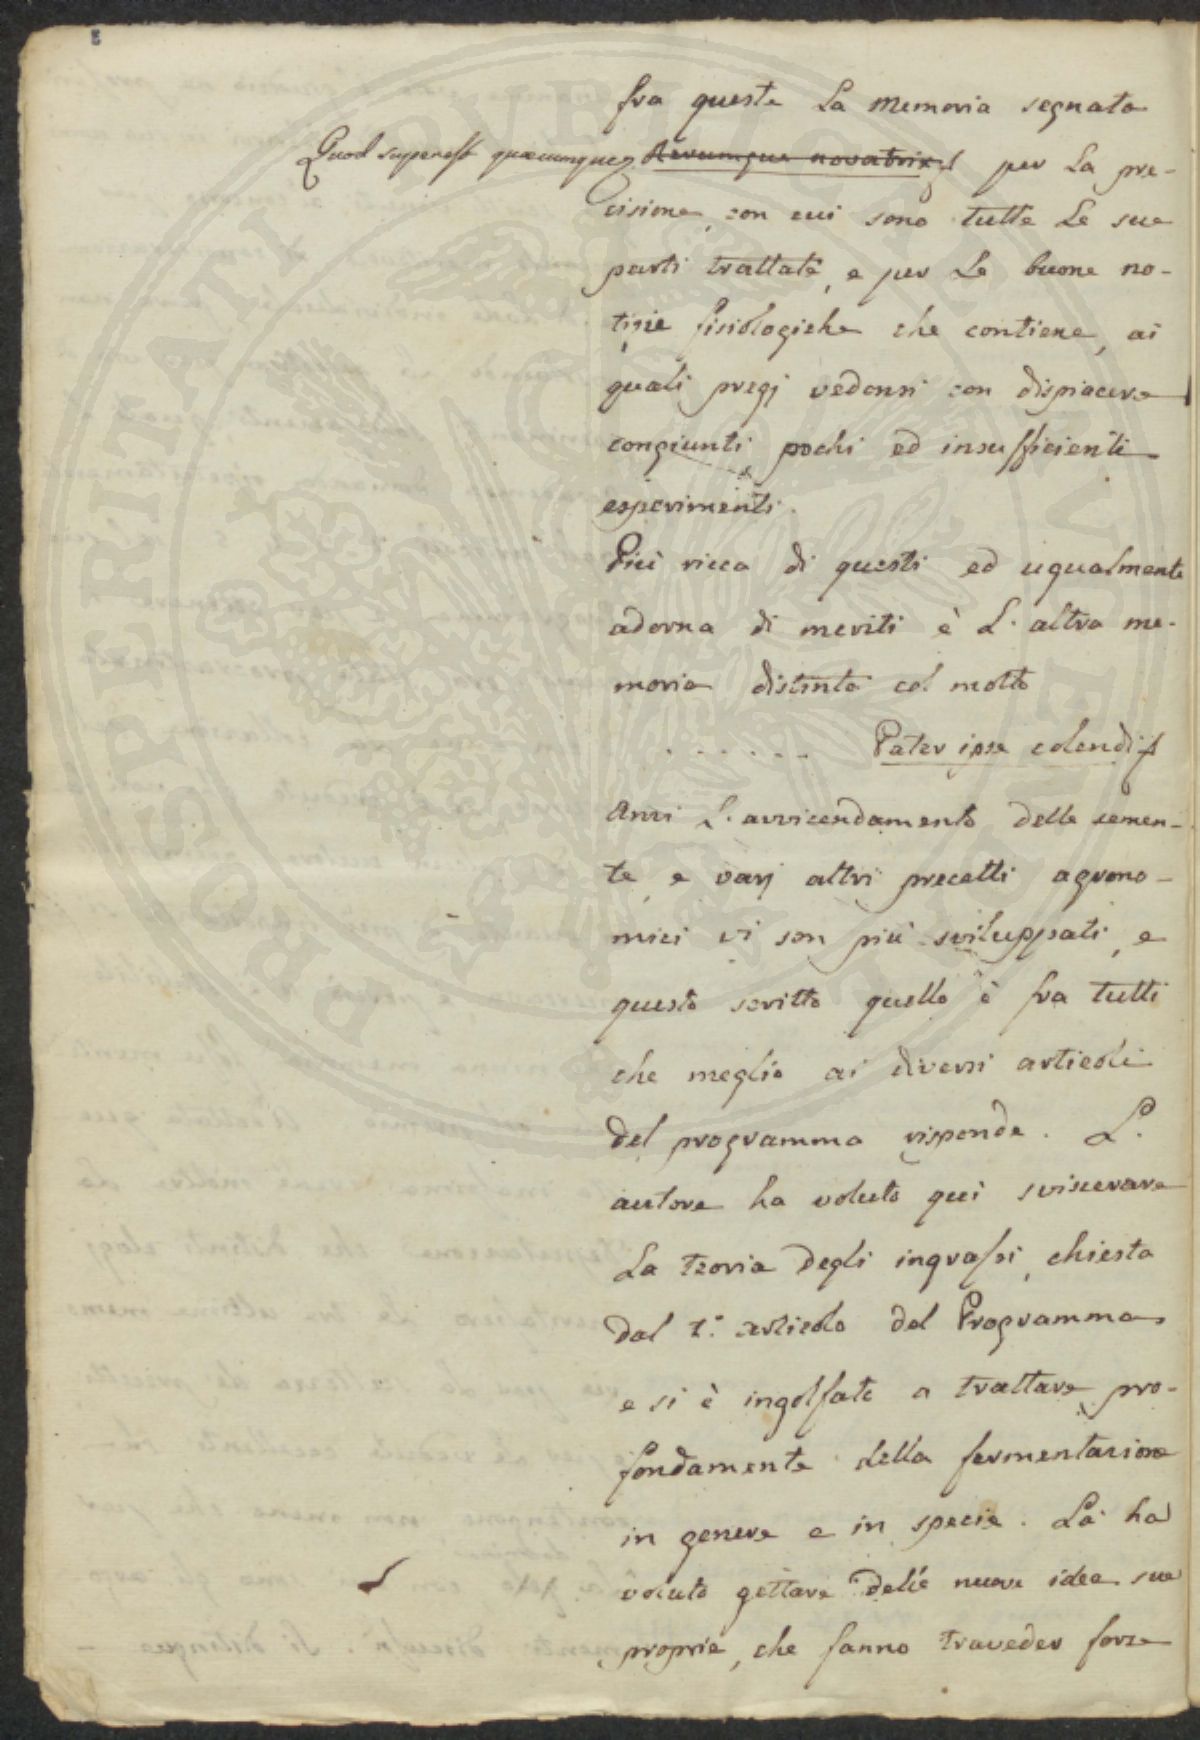 fra queste La Memoria segnata
Quod superest quæcumque &c. Rerumque novatrix &c per La pre-
cisione, con cui sono tutte Le sue
parti trattate, e per Le buone no-
tizie fisiologiche che contiene, ai
quali pregj vedonsi con dispiacere
congiunti pochi ed insufficienti
esperimenti.
Più ricca di questi ed ugualmente
adorna di meriti è L'altra me-
moria distinta col motto
. . . . . . Pater ipse colendi &
Anzi L'avvicendamento delle semen-
te, e varj altri precetti agrono-
mici vi son più sviluppati, e
questo scritto quello è fra tutti
che meglio ai diversi articoli
del programma risponde. L'
autore ha voluto qui sviscerare
La teoria degli ingrassi, chiesta
dal 1.° articolo del Programma,
e si è ingolfato a trattare pro-
fondamente della fermentazione
in genere e in specie. Là ha
voluto gettare delle nuove idee sue
proprie, che fanno traveder forze
PROSPERITATI PUBLICAE AUGENDAE